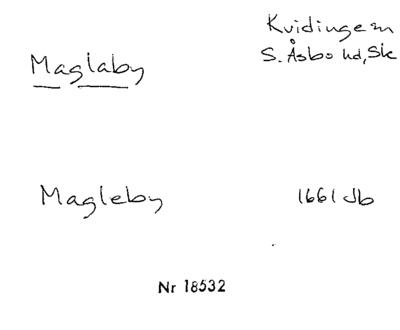 Kvidinge sn
Maglaby
S. Åsbo hd, Sk
Magleby
1661 Jb
Nr 18532